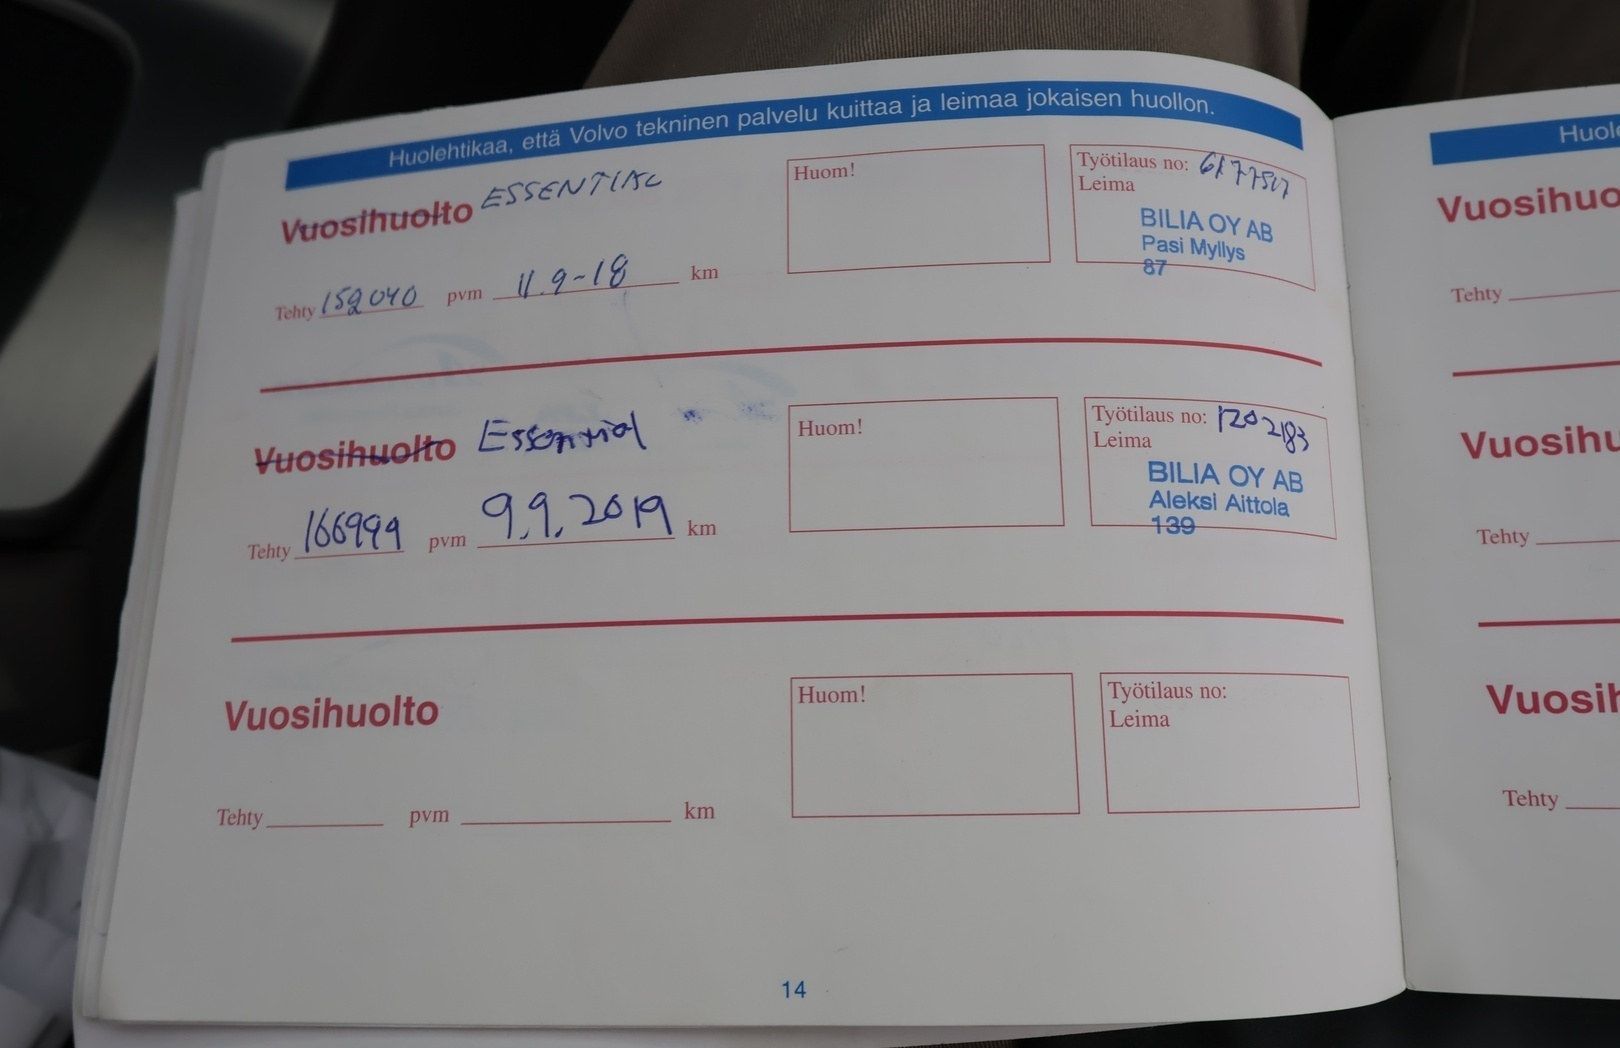 Huolehtikaa, että Volvo tekninen palvelu kuittaa ja leimaa jokaisen huollon.
Vuosihuolto ESSENTIAL
Tehty 152040 pvm 11.9-18 km
Huom!
Työtilaus no:
Leima
BILIA OY AB
Pasi Myllys
87
Vuosihuolto Essential
Tehty 166999 pvm 9.9.2019 km
Huom!
Työtilaus no: 1202183
Leima
BILIA OY AB
Aleksi Aittola
139
Vuosihuolto
Tehty pvm km
Huom!
Työtilaus no:
Leima
14
Tehty
Tehty
Tehty